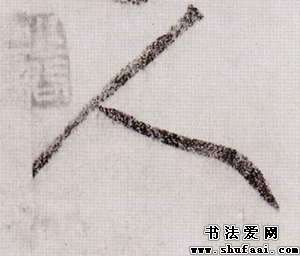 人
书法爱网
www.shufaai.com